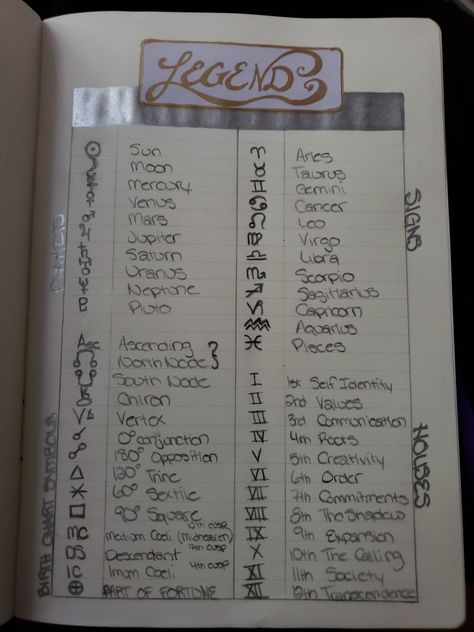 LEGEND
PLANETS
Sun
Moon
Mercury
Venus
Mars
Jupiter
Saturn
Uranus
Neptune
Pluto
BIRTH CHART SYMBOLS
Asc Ascending
North Node
South Node
Chiron
Vertex
0° Conjunction
180° Opposition
120° Trine
60° Sextile
90° Square
Medium Coeli (midheaven) 10th cusp
Descendant 7th cusp
Imum Coeli 4th cusp
PART OF FORTUNE
SIGNS
♈ Aries
♉ Taurus
♊ Gemini
♋ Cancer
♌ Leo
♍ Virgo
♎ Libra
♏ Scorpio
♐ Sagittarius
♑ Capricorn
♒ Aquarius
♓ Pisces
HOUSES
I 1st Self Identity
II 2nd Values
III 3rd Communication
IV 4th Roots
V 5th Creativity
VI 6th Order
VII 7th Commitments
VIII 8th The Shadow
IX 9th Expansion
X 10th The Calling
XI 11th Society
XII 12th Transcendence